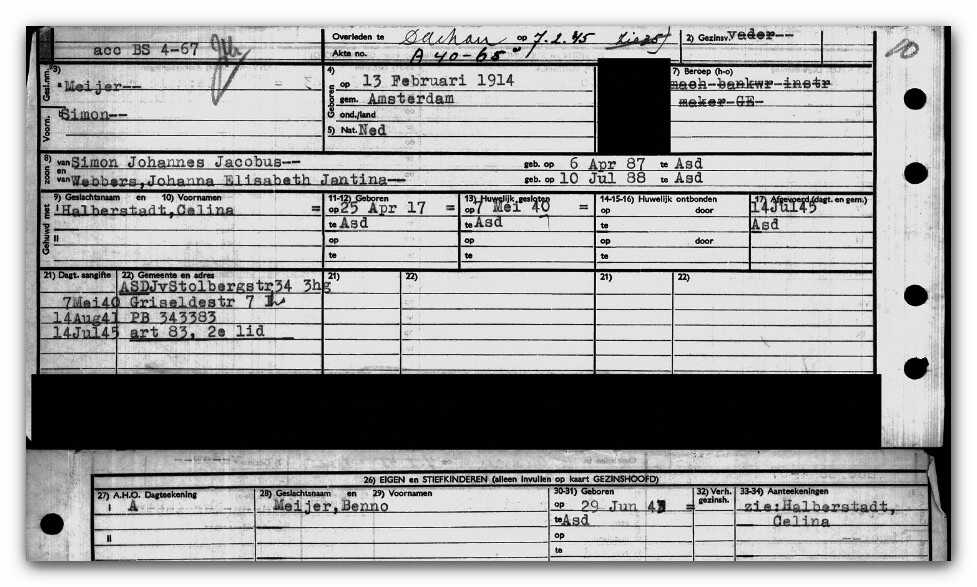 acc BS 4-67
Overleden te Dachau op 7.2.45 zie 25)
Akte no. A 40-65
2) Gezinsv. vader--
3)
Gesl.nm.
Meijer--
Voorn.
Simon--
4)
Geboren
op 13 Februari 1914
gem. Amsterdam
ond./land
5) Nat. Ned
7) Beroep (h-o)
mach bankwr instr
maker GE-
8)
zoon
van Simon Johannes Jacobus-- geb. op 6 Apr 87 te Asd
en
van Webbers, Johanna Elisabeth Jantina-- geb. op 10 Jul 88 te Asd
Gehuwd met
9) Geslachtsnaam en 10) Voornamen
I Halberstadt, Celina =
II
11-12) Geboren
op 25 Apr 17 =
te Asd
op
te
13) Huwelijk gesloten
op 7 Mei 40 =
te Asd
op
te
14-15-16) Huwelijk ontbonden
op door
te
op door
te
17) Afgevoerd (dagt. en gem.)
14Jul45
Asd
21) Dagt. aangifte 22) Gemeente en adres 21) 22) 21) 22)
ASDJvStolbergstr34 3hg
7Mei40 Griseldestr 7
14Aug41 PB 343383
14Jul45 art 83, 2e lid
26) EIGEN en STIEFKINDEREN (alleen invullen op kaart GEZINSHOOFD)
27) A.H.O. Dagteekening 28) Geslachtsnaam en 29) Voornamen 30-31) Geboren 32) Verh. gezinsh. 33-34) Aanteekeningen
I A Meijer, Benno op 29 Jun = zie: Halberstadt,
te Asd Celina
II op
te